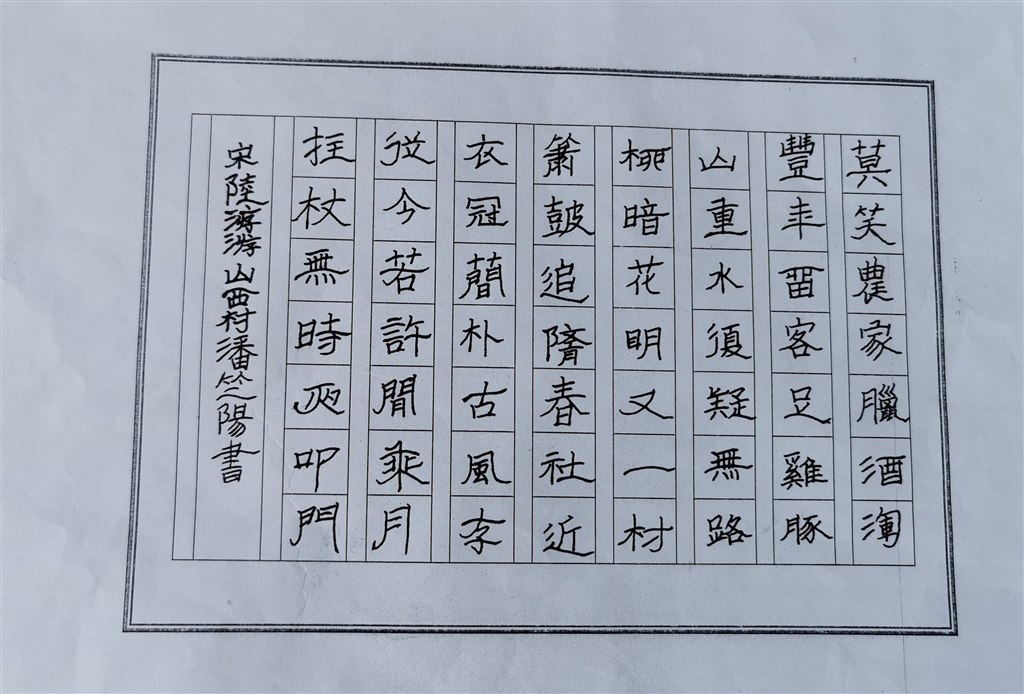 莫笑農家臘酒渾
豐年留客足雞豚
山重水復疑無路
柳暗花明又一村
簫鼓追隨春社近
衣冠簡朴古風存
從今若許閒乘月
拄杖無時夜叩門
宋陸游游山西村潘竺陽書